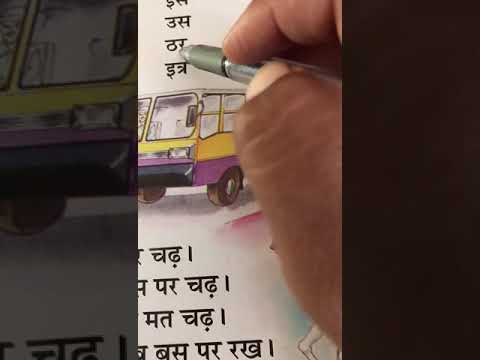 इस
उस
ठर
इत्र
चढ़।
पर चढ़।
मत चढ़।
बस पर रख।